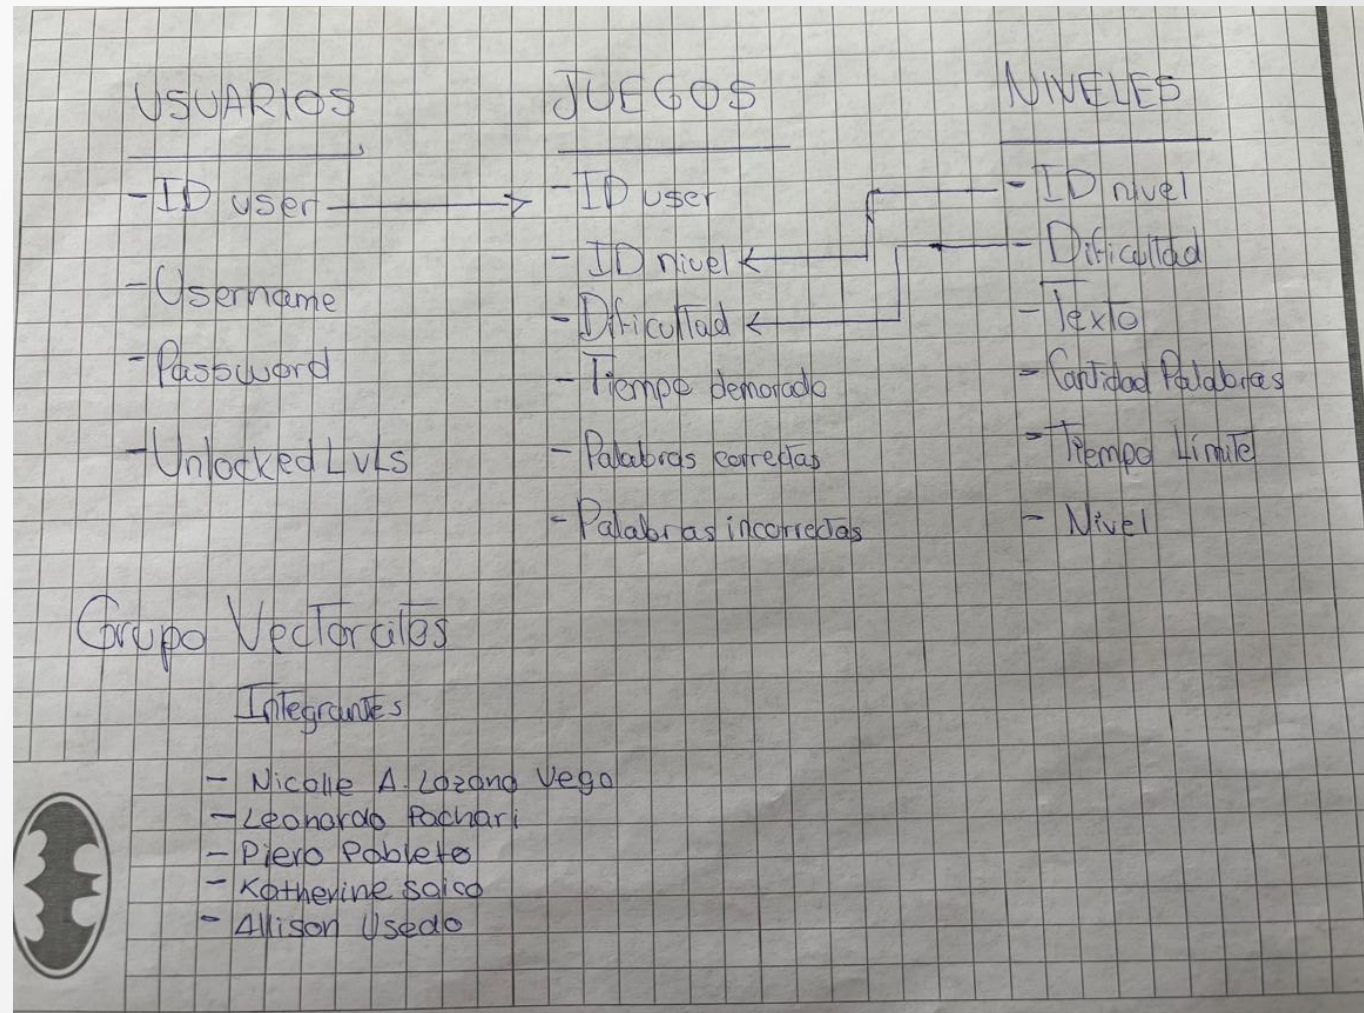 USUARIOS
- ID user
- Username
- Password
- Unlocked LvLs
JUEGOS
- ID user
- ID nivel
- Dificultad
- Tiempo demorado
- Palabras correctas
- Palabras incorrectas
NIVELES
- ID nivel
- Dificultad
- Texto
- Cantidad Palabras
- Tiempo Límite
- Nivel
Grupo Vectorcitos
Integrantes
- Nicolle A. Lozano Vega
- Leonardo Pachari
- Piero Poblete
- Katherine Saico
- Allison Usedo